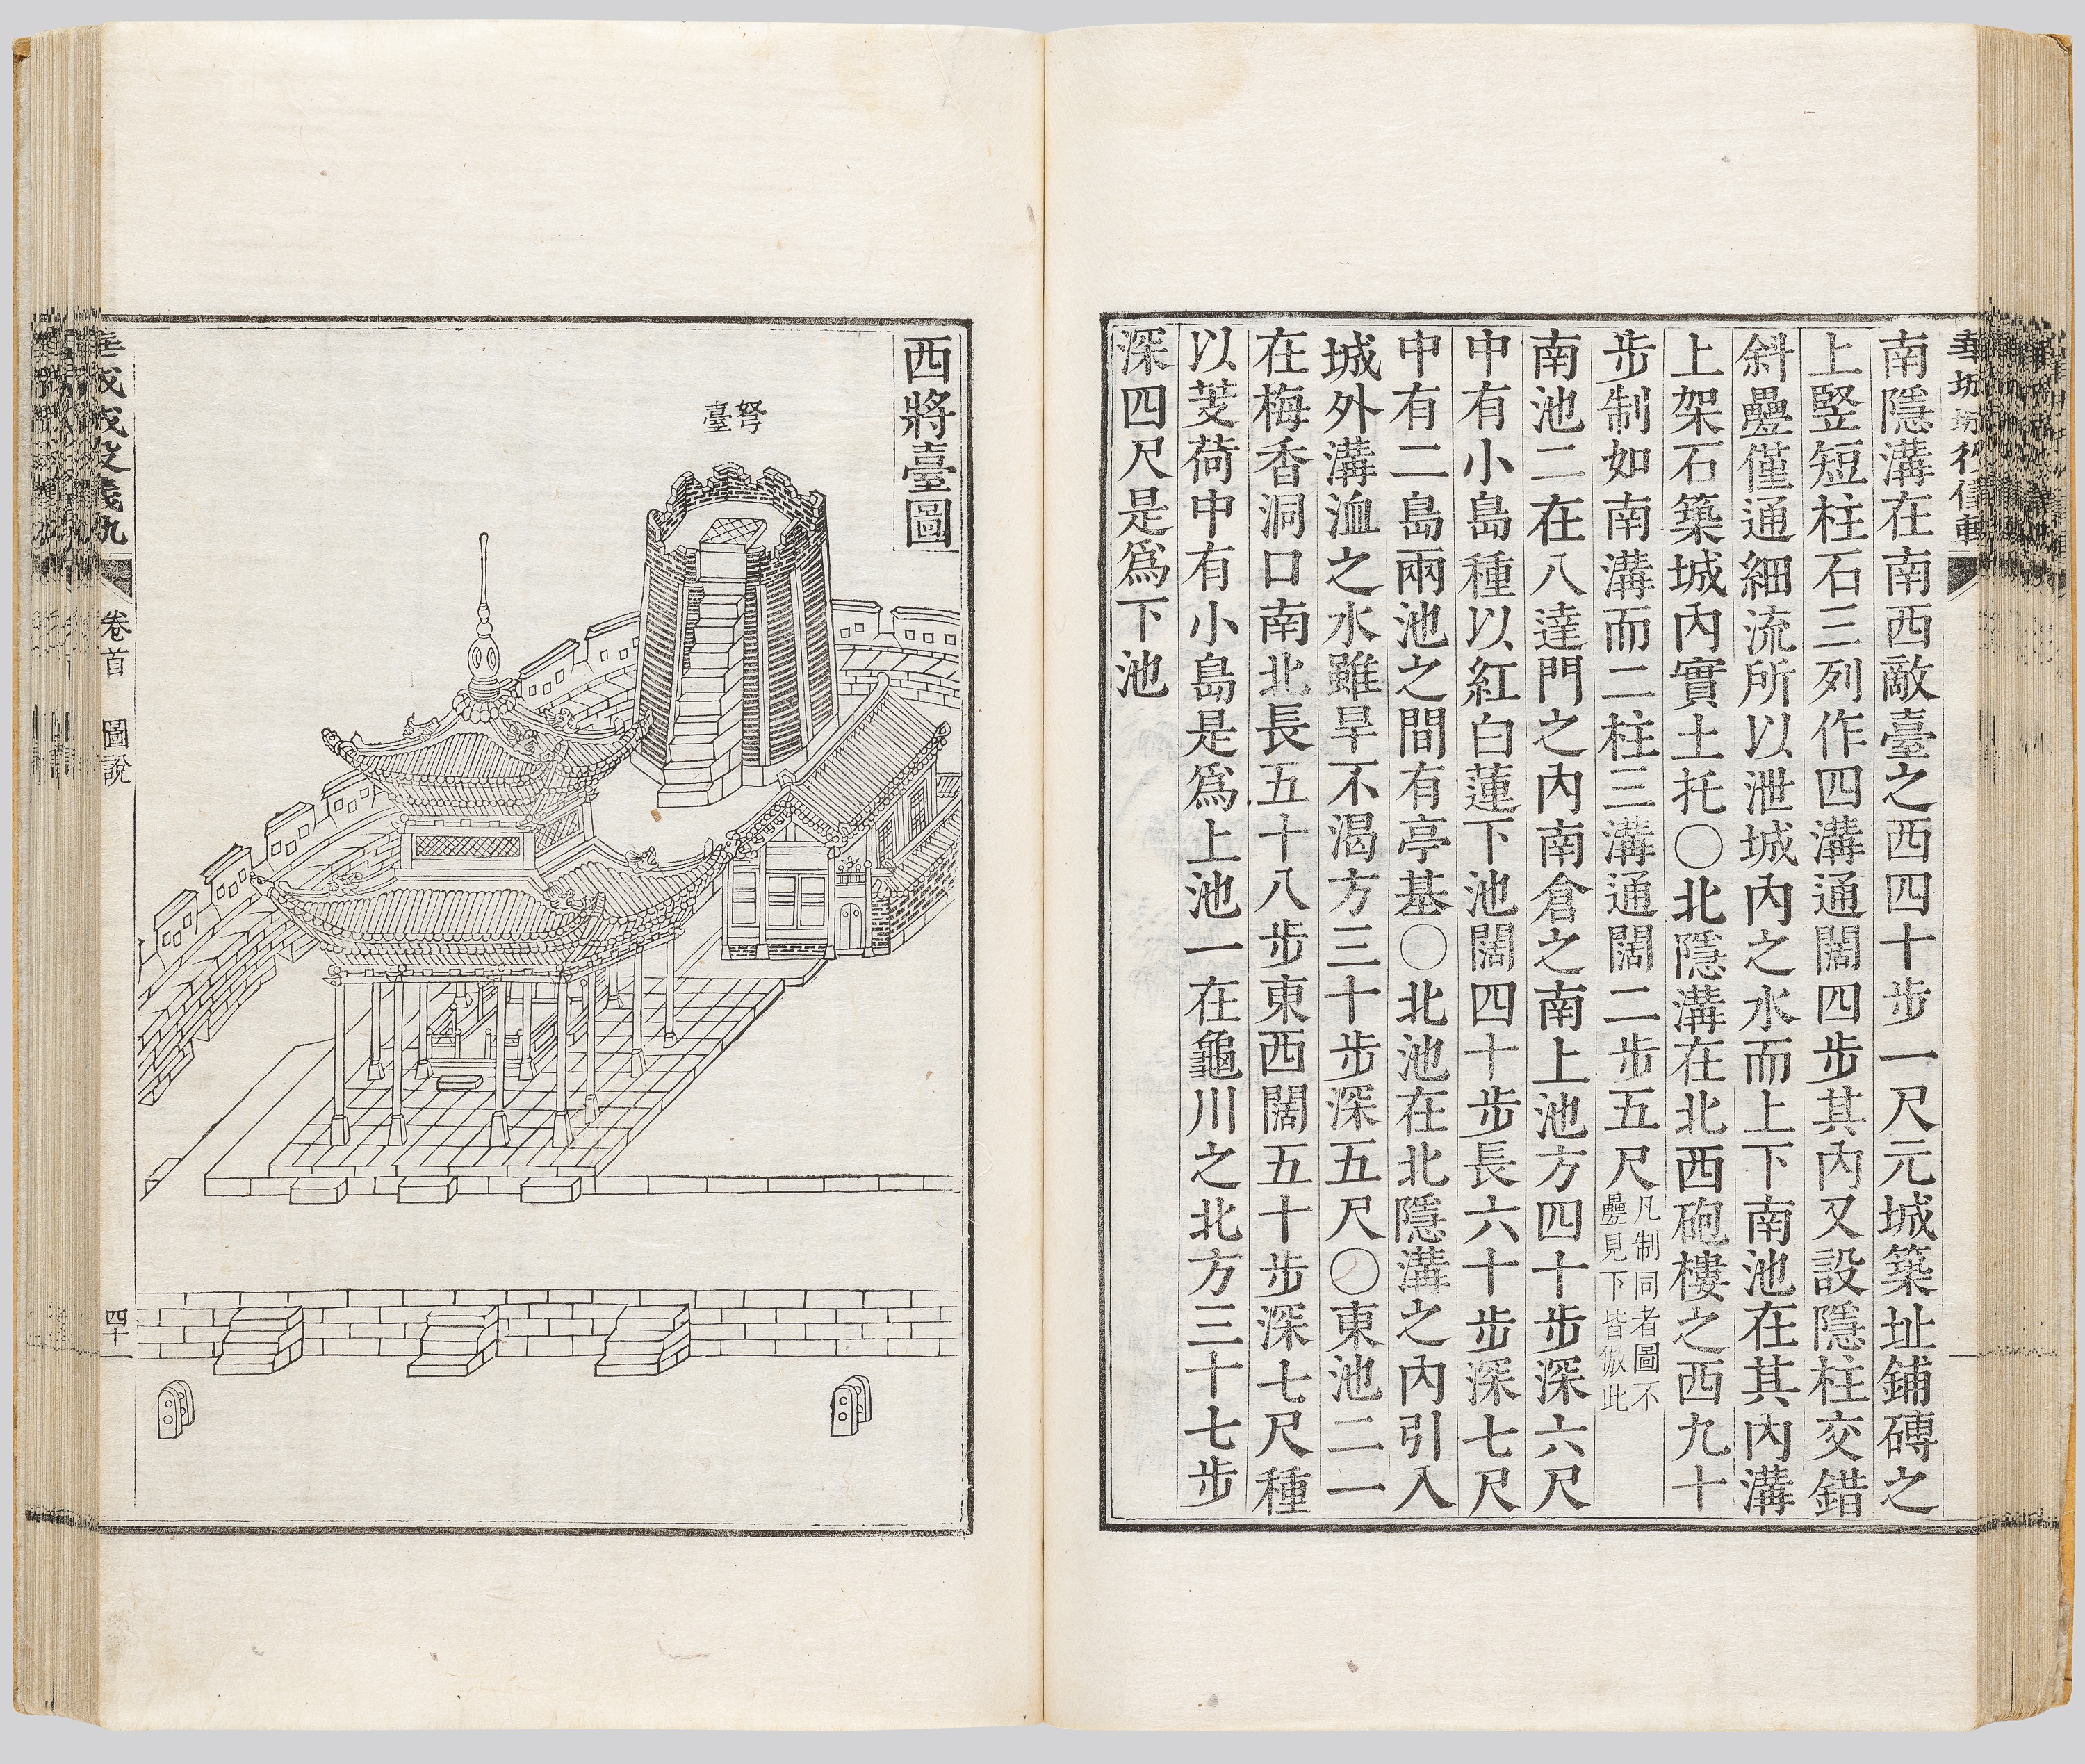 南隱溝在南西敵臺之西四十步一尺元城築址鋪磚之
上竪短柱石三列作四溝通闊四步其內又設隱柱交錯
斜疊僅通細流所以泄城內之水而上下南池在其內溝
上架石築城內實土托〇北隱溝在北西砲樓之西九十
步制如南溝而二柱三溝通闊二步五尺
凡制同者圖不
疊見下皆倣此
南池二在八達門之內南倉之南上池方四十步深六尺
中有小島種以紅白蓮下池闊四十步長六十步深七尺
中有二島兩池之間有亭基〇北池在北隱溝之內引入
城外溝洫之水雖旱不渴方三十步深五尺〇東池二一
在梅香洞口南北長五十八步東西闊五十步深七尺種
以芰荷中有小島是爲上池一在龜川之北方三十七步
深四尺是爲下池
西將臺圖
弩
臺
卷首 圖說
四十一